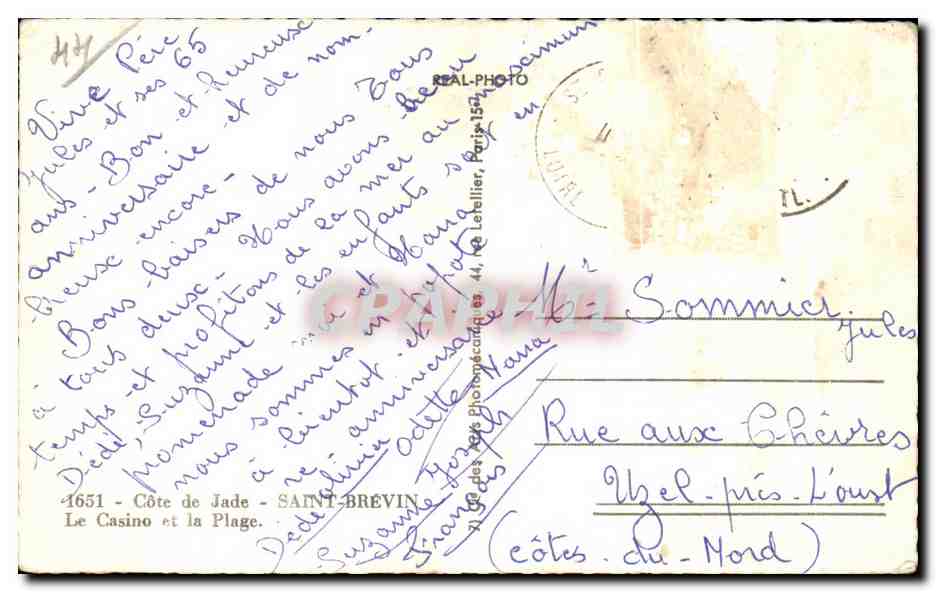 44
Vive Père
Jules et ses 65
ans - Bon et heureuse
anniversaire et de nom-
breux encore -
Bons baisers de nous tous
à tous deux - Nous avons beau
temps et profitons de la mer au maximum
Dédé, Suzanne et les enfants sont en
promenade moi et Nana
nous sommes au
à bientôt et
anniversaire
Dédé Olivier Odette Nana
Suzanne Joseph
Francis
1651 - Côte de Jade - SAINT-BREVIN
Le Casino et la Plage.
REAL-PHOTO
des Arts Photomécaniques, 44, rue Letellier, Paris-15e
CPAPHIL
Mr Sommier
Jules
Rue aux Chèvres
Uzel-près-L'oust
(Côtes-du-Nord)